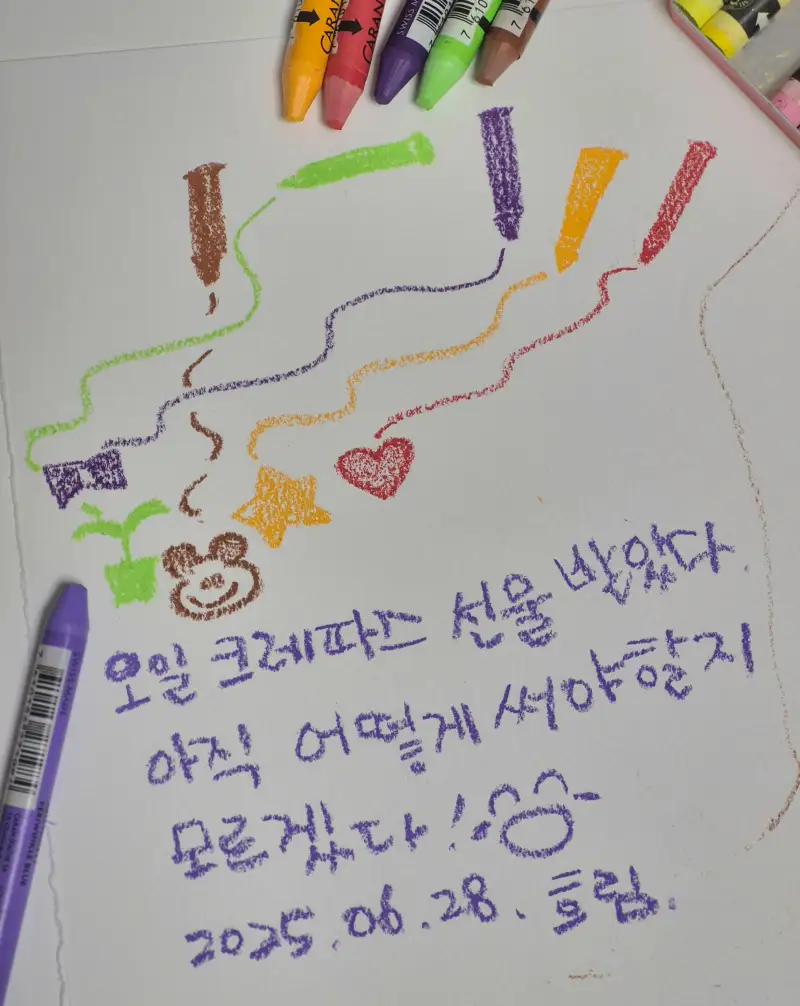 CARAN
CARAN
SWISS M
오일 크레파스 선물 받았다.
아직 어떻게 써야할지
모르겠다!
2025.06.28. 흐림.
SWISS MADE
PERIWINKLE BLUE